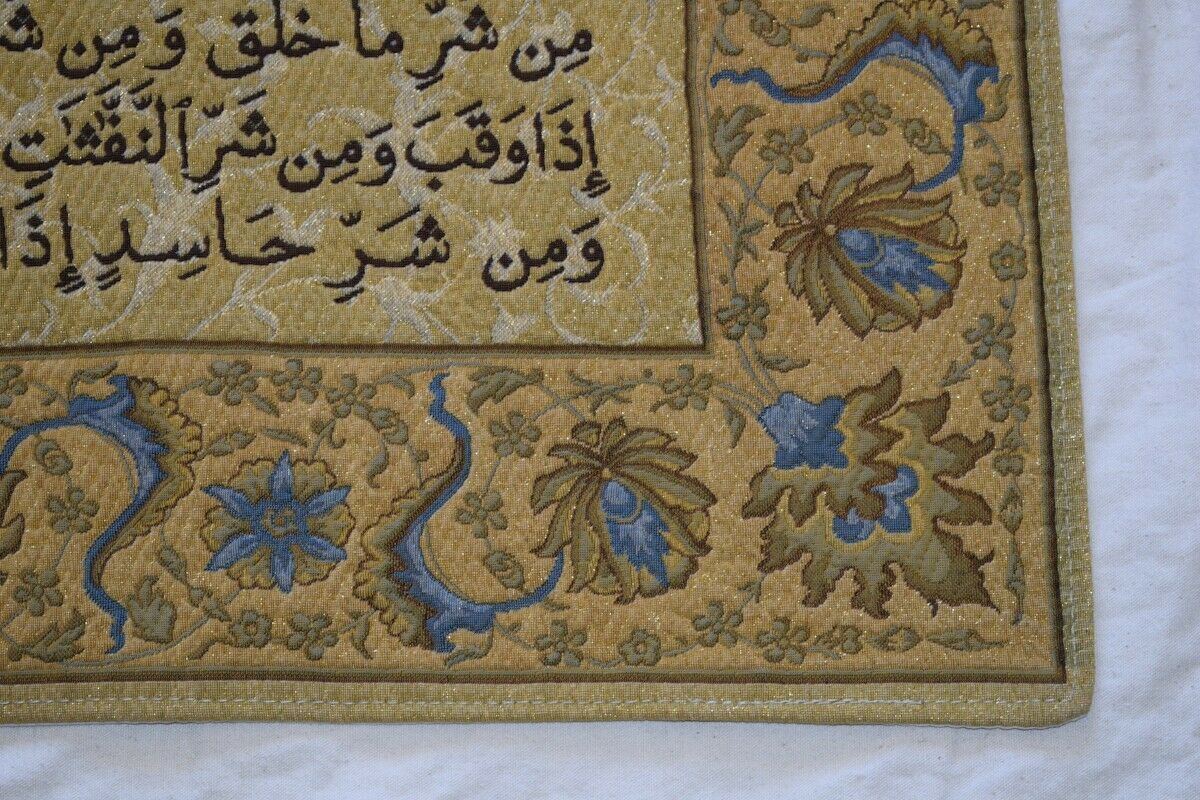 مِن شَرِّ مَا خَلَقَ وَمِن
إِذَا وَقَبَ وَمِن شَرِّ ٱلنَّفَّٰثَٰتِ
وَمِن شَرِّ حَاسِدٍ إِذَا